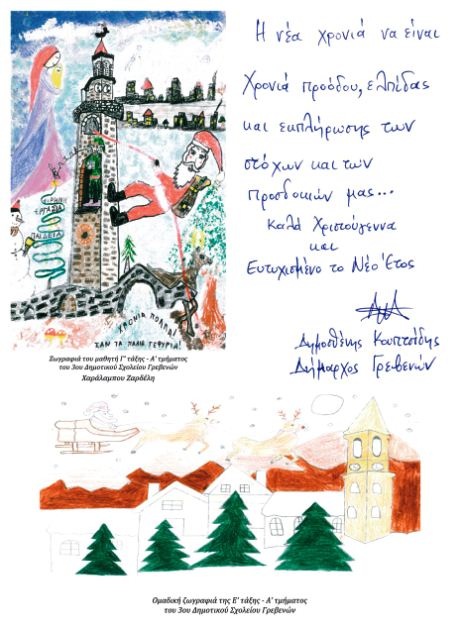 Η νέα χρονιά να είναι
Χρονιά προόδου, ελπίδας
και εκπλήρωσης των
στόχων και των
προσδοκιών μας...
Καλά Χριστούγεννα
και
Ευτυχισμένο το Νέο Έτος
Δημοσθένης Κουπτσίδης
Δήμαρχος Γρεβενών
ΕΙΡΗΝΗ
ΕΡΓΑΣΙΑ
ΠΑΙΔΕΙΑ
ΧΡΟΝΙΑ ΠΟΛΛΑ!
ΣΑΝ ΤΑ ΠΑΛΙΑ ΓΕΦΥΡΙΑ!
Ζωγραφιά του μαθητή Γ' τάξης - Α' τμήματος
του 3ου Δημοτικού Σχολείου Γρεβενών
Χαράλαμπου Ζαρδέλη
Ομαδική ζωγραφιά της Ε' τάξης - Α' τμήματος
του 3ου Δημοτικού Σχολείου Γρεβενών